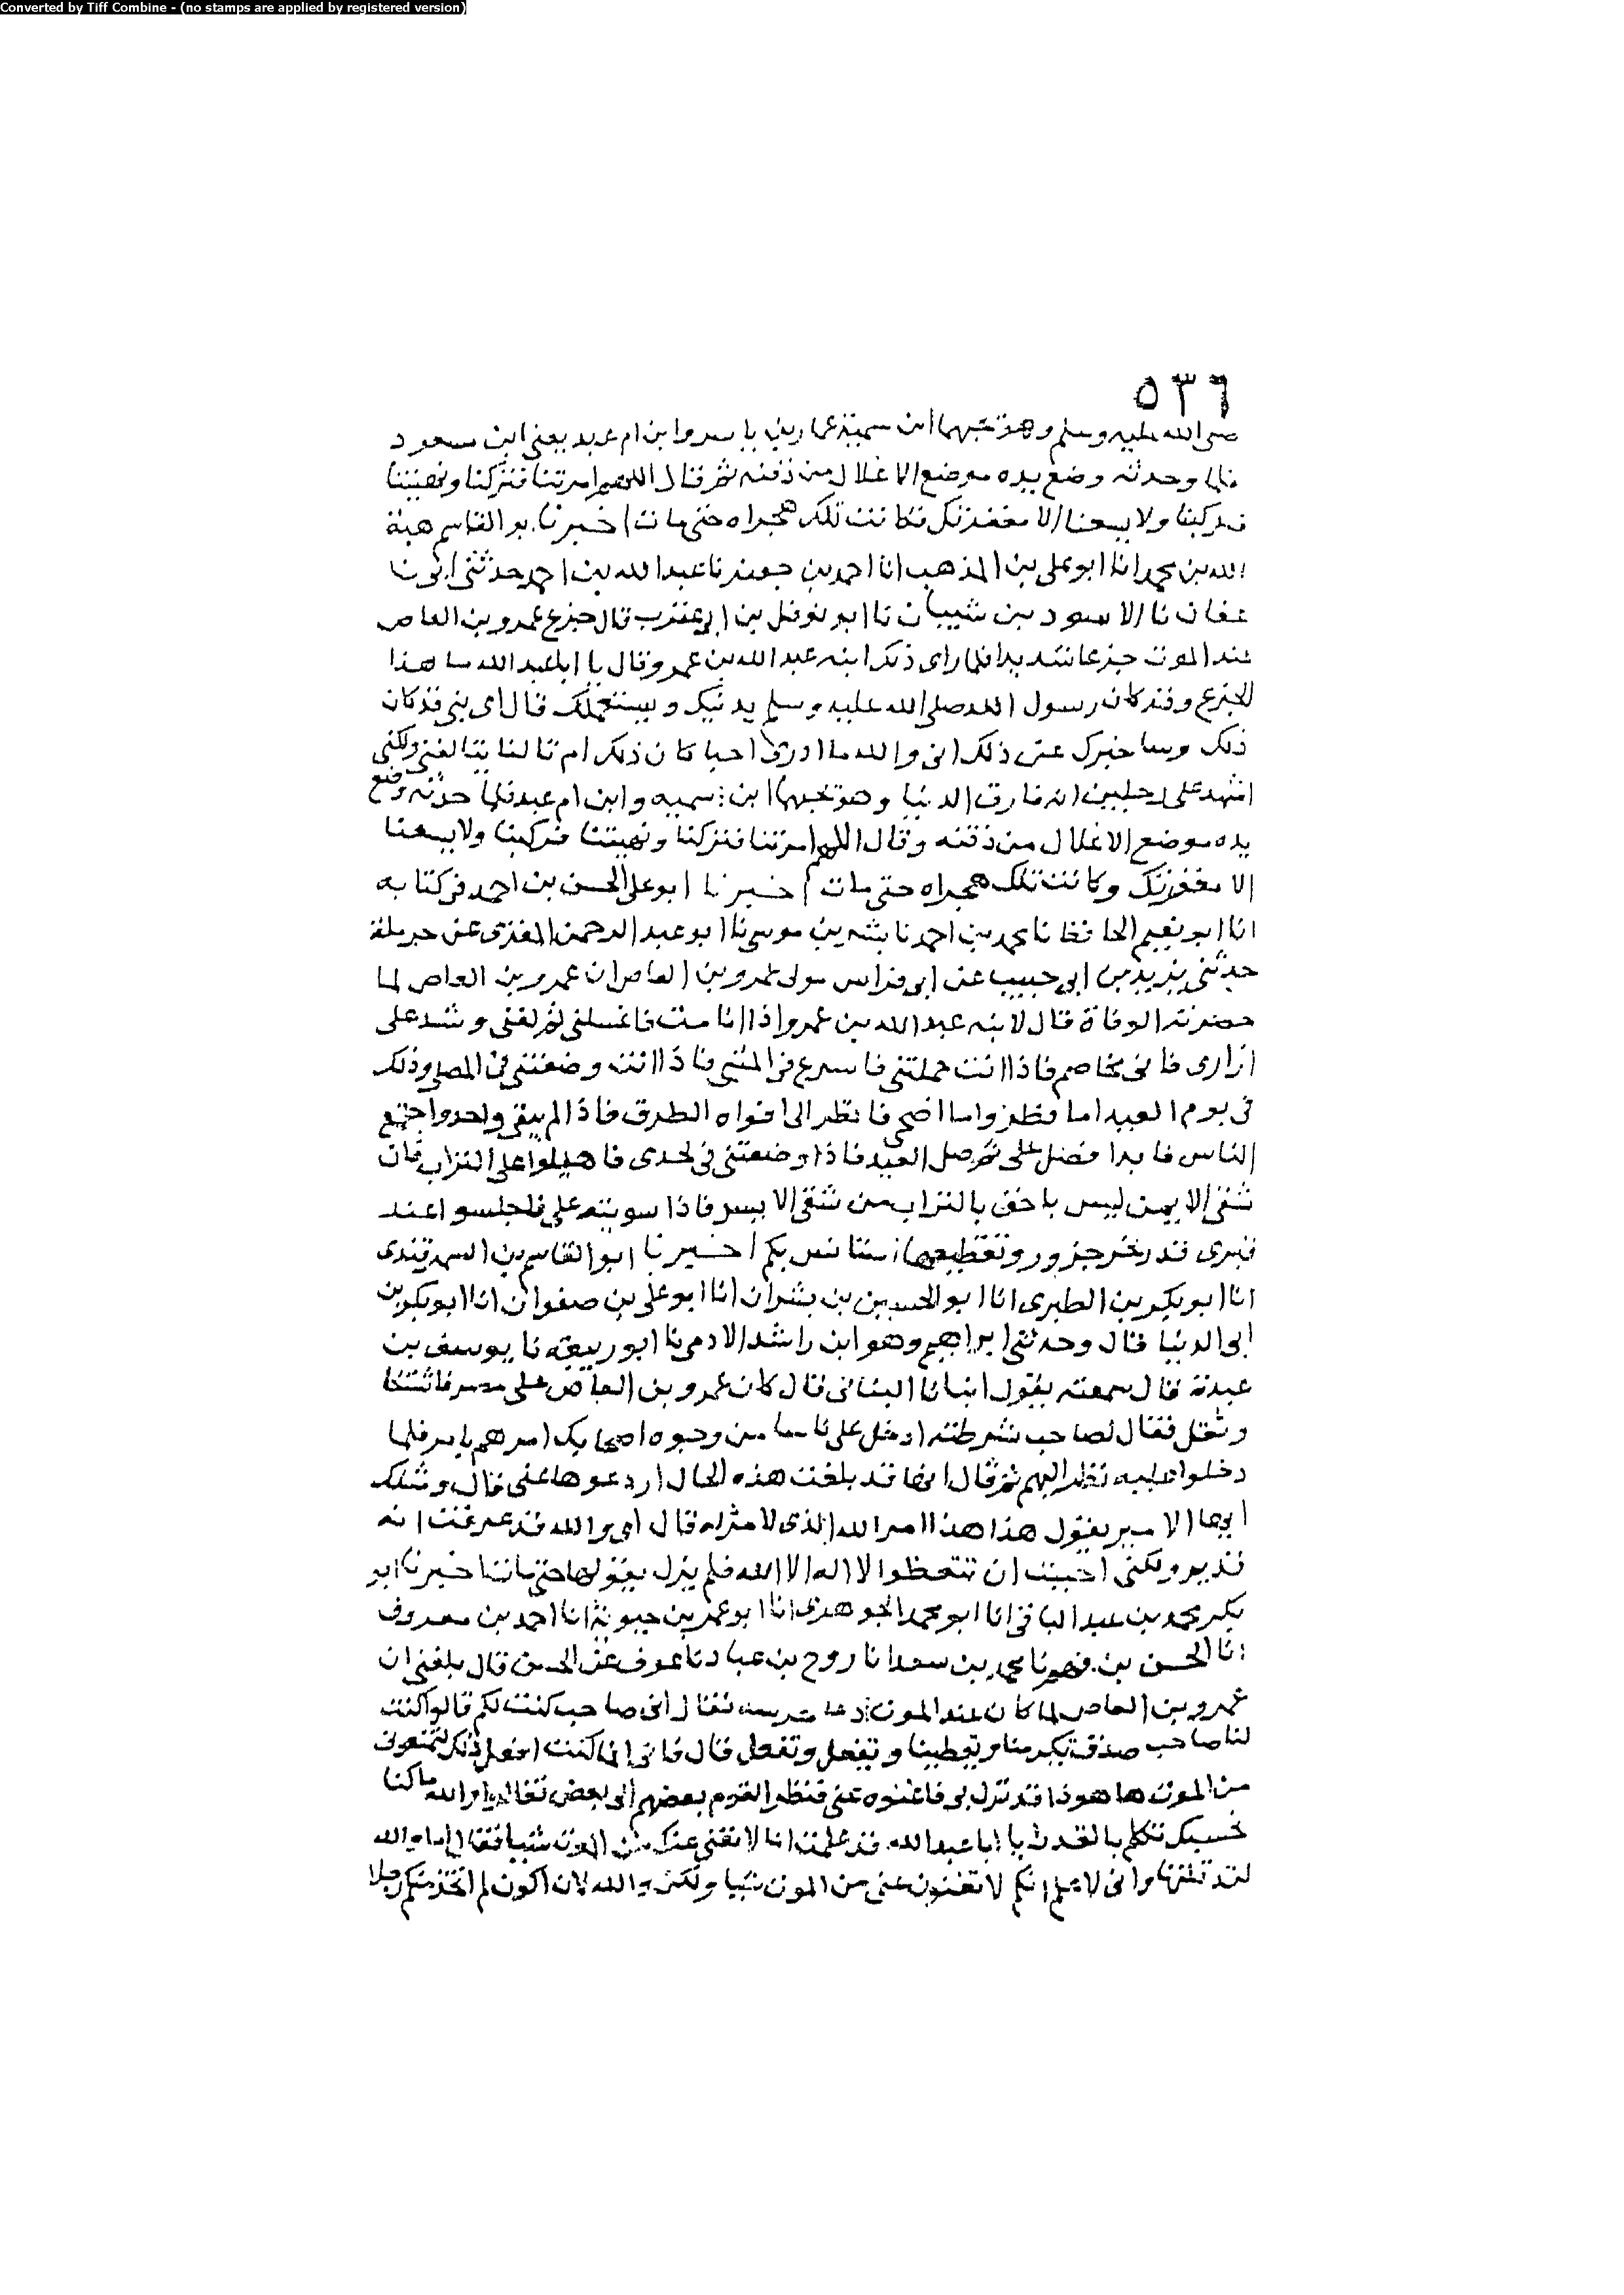 Converted by Tiff Combine - (no stamps are applied by registered version)
٥٣٦
صلى الله عليه وسلم وهو يحبهما ابن سمية عمار بن ياسر وابن ام عبد يعني ابن مسعود
فلما وحدثه وضع يده موضع الاغلال من ذقنه ثم قال اللهم امرتنا فتركنا ونهيتنا
فركبنا ولا يسعنا الا مغفرتك فكانت تلك هجيراه حتى مات اخبرنا ابو القاسم هبة
الله بن محمد انا ابو علي بن المذهب انا احمد بن جعفر نا عبد الله بن احمد حدثني ابي نا
عفان نا الاسود بن شيبان نا ابو نوفل بن ابي عقرب قال جزع عمرو بن العاص
عند الموت جزعا شديدا فلما راى ذلك ابنه عبد الله بن عمرو قال يا ابا عبد الله ما هذا
الجزع وقد كان رسول الله صلى الله عليه وسلم يدنيك ويستعملك قال اي بني قد كان
ذلك وساخبرك عن ذلك اني والله ما ادري احبا كان ذلك ام تالفا يتالفني ولكني
اشهد على رجلين انه فارق الدنيا وهو يحبهما ابن سميه وابن ام عبد فلما حدثه وضع
يده موضع الاغلال من ذقنه وقال اللهم امرتنا فتركنا ونهيتنا فركبنا ولا يسعنا
الا مغفرتك وكانت تلك هجيراه حتى مات اخبرنا ابو علي الحسن بن احمد في كتابه
انا ابو نعيم الحافظ نا محمد بن احمد نا بشر بن موسى نا ابو عبد الرحمن المقري عن حرملة
حدثني يزيد بن ابي حبيب عن ابي فراس مولى عمرو بن العاص ان عمرو بن العاص لما
حضرته الوفاة قال لابنه عبد الله بن عمرو اذا انا مت فاغسلني ثم لفني وشد على
ازاري فاني مخاصم فاذا انت حملتني فاسرع في المشي فاذا انت وضعتني في المصلى وذلك
في يوم العيد اما فطر واما اضحى فانظر الى افواه الطرق فاذا لم يبق واحد واجتمع
الناس فابدا فصل علي ثم صل العيد فاذا وضعتني في لحدي فاهيلوا علي التراب فان
شقي الايمن ليس باحق بالتراب من شقي الايسر فاذا سويتم علي فاجلسوا عند
قبري قدر نحر جزور وتقطيعها استانس بكم اخبرنا ابو القاسم بن السمرقندي
انا ابو بكر بن الطبري انا ابو الحسين بن بشران انا ابو علي بن صفوان انا ابو بكر بن
ابي الدنيا قال وحدثني ابراهيم وهو ابن راشد الادمي نا ابو ربيعه نا يوسف بن
عبدة قال سمعته يقول انبانا البناني قال كان عمرو بن العاص على مصر فاشتكا
وثقل فقال لصاحب شرطته ادخل علي ناسا من وجوه اصحابك امرهم بامر فلما
دخلوا عليه نظر اليهم ثم قال انها قد بلغت هذه الحال اردعوها عني قال ومثلك
ايها الامير يقول هذا هذا امر الله الذي لا مرد له قال اي والله قد عرفت انه
كذلك ولكني احببت ان تتعظوا لا اله الا الله فلم يزل يقولها حتى مات اخبرنا ابو
بكر محمد بن عبد الباقي انا ابو محمد الجوهري انا ابو عمر بن حيوية انا احمد بن معروف
انا الحسن بن فهم نا محمد بن سعد انا روح بن عباد نا عوف عن الحسن قال بلغني ان
عمرو بن العاص لما كان عند الموت دعا حرسه فقال اني صاحب كنت لكم قالوا كنت
لنا صاحب صدق تكرمنا وتعطينا وتفعل وتفعل قال فاني انما كنت افعل ذلك لتمنعوني
من الموت ها هو ذا قد نزل بي فاغنوه عني فنظر القوم بعضهم الى بعض فقالوا والله ما كنا
نحسبك تتكلم بالعدل يا ابا عبد الله قد علمت انا لا نغني عنك من الموت شيا فقال اما والله
لقد قلتها واني لاعلم انكم لا تغنون عني من الموت شيا ولكن والله لان اكون لم اتخذ منكم رجلا